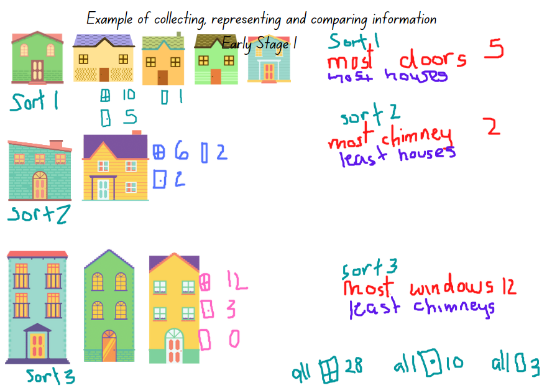 Example of collecting, representing and comparing information
Early Stage 1
Sort 1
10
1
5
Sort 1
most doors 5
most houses
6
2
2
Sort 2
sort 2
most chimney 2
least houses
12
3
0
Sort 3
sort 3
most windows 12
least chimneys
all 28 all 10 all 3